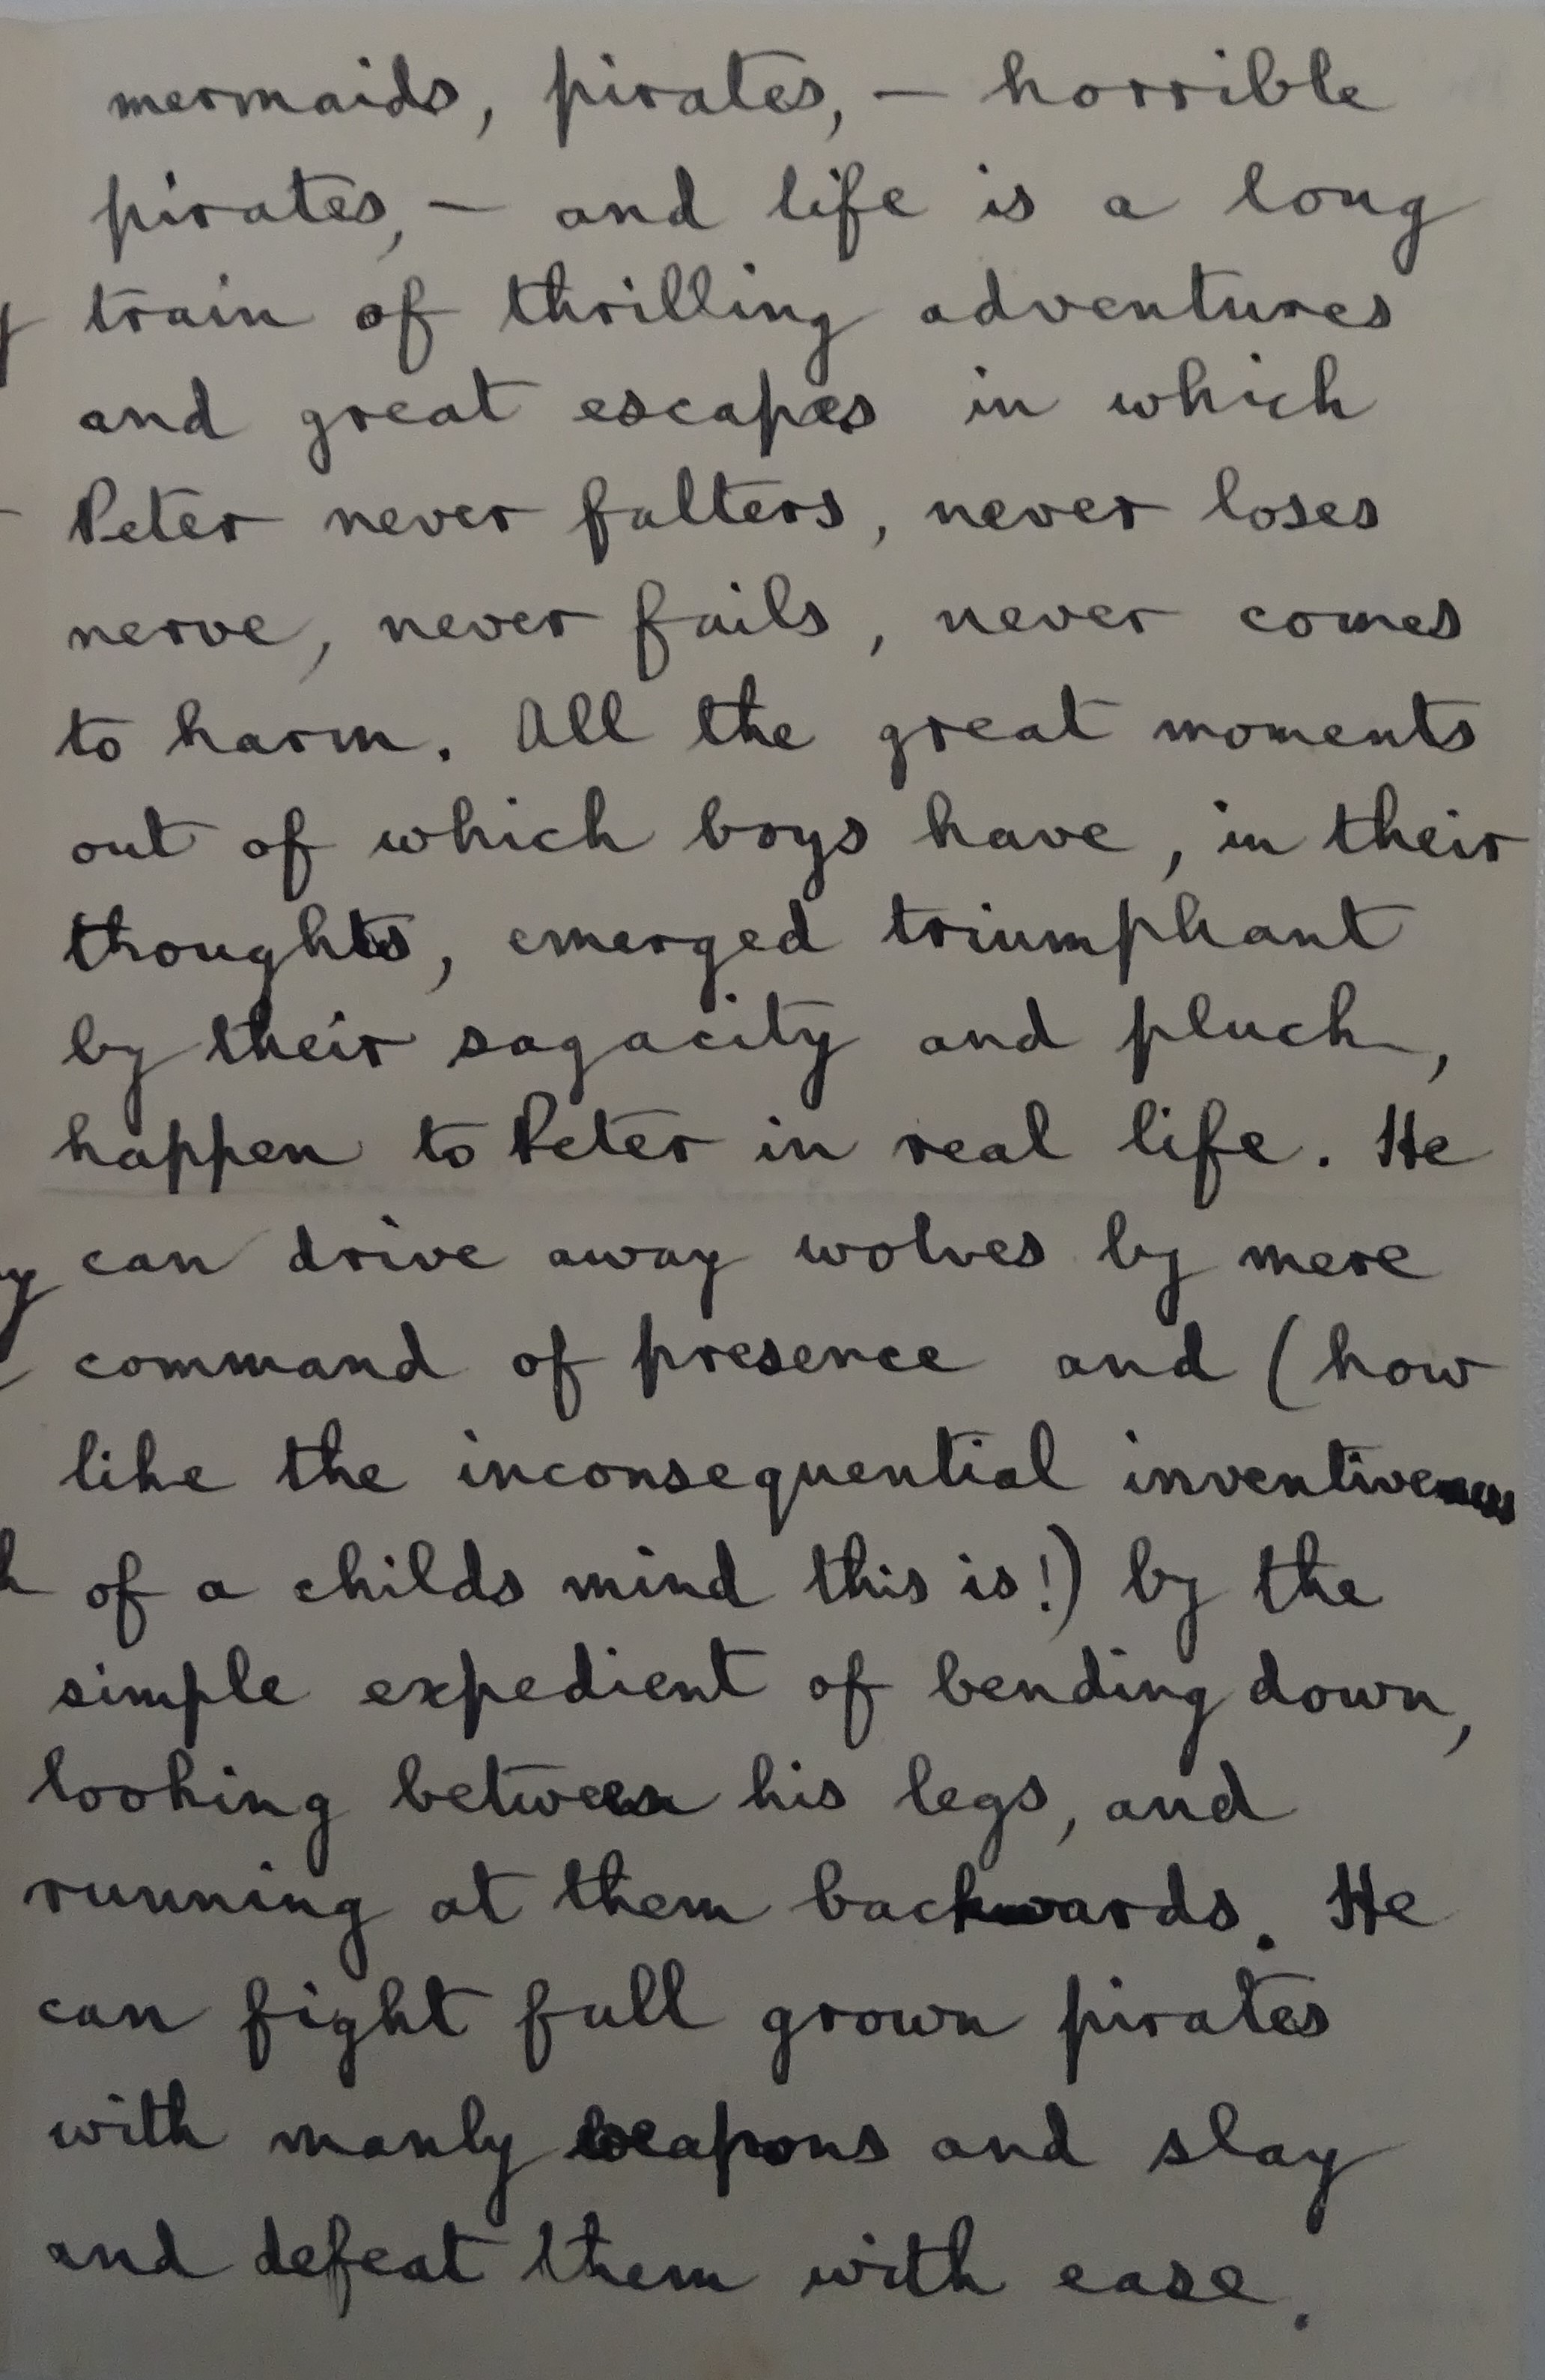 mermaids, pirates, — horrible
pirates, — and life is a long
train of thrilling adventures
and great escapes in which
Peter never falters, never loses
nerve, never fails, never comes
to harm. All the great moments
out of which boys have, in their
thoughts, emerged triumphant
by their sagacity and pluck,
happen to Peter in real life. He
can drive away wolves by mere
command of presence and (how
like the inconsequential inventiveness
of a childs mind this is!) by the
simple expedient of bending down,
looking between his legs, and
running at them backwards. He
can fight full grown pirates
with manly weapons and slay
and defeat them with ease.